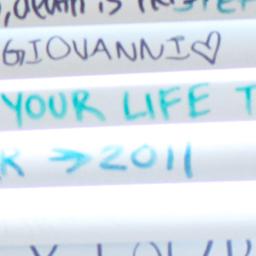 , death is
GIOVANNI♡
YOUR LIFE T
K → 2011